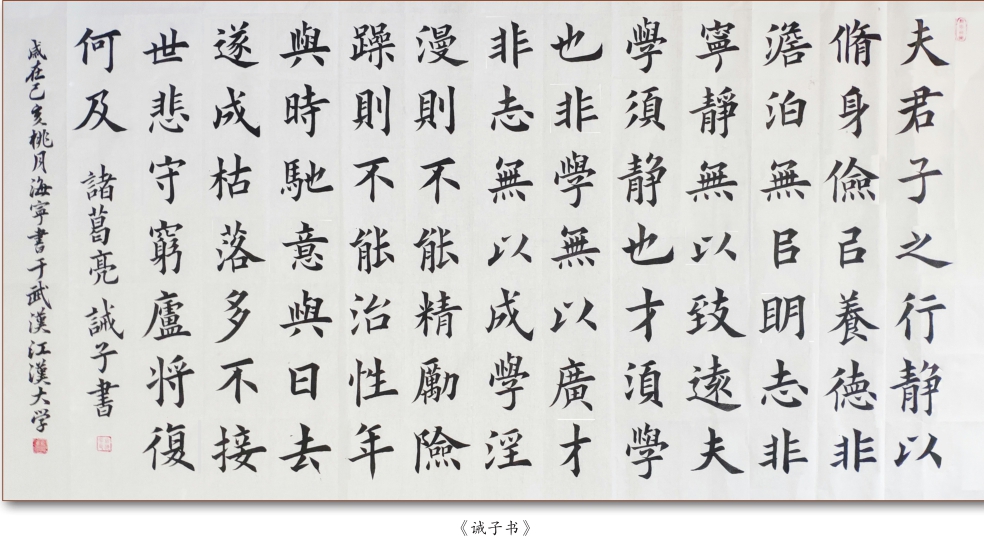 夫君子之行靜以
脩身儉㠯養德非
澹泊無㠯明志非
寧靜無以致遠夫
學須靜也才須學
也非學無以廣才
非志無以成學淫
漫則不能精勵險
躁則不能治性年
與時馳意與日去
遂成枯落多不接
世悲守窮廬將復
何及 諸葛亮誡子書
歲在己亥桃月海寧書于武漢江漢大学
《诫子书》